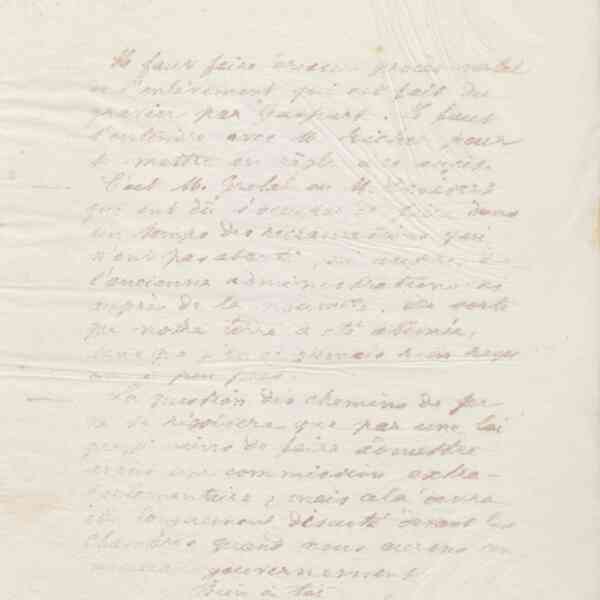 Il faut faire dresser procès-verbal
de l'enlèvement qui est fait du
gravier par Gaspart. Il faut
l'entendre avec M. pour
se mettre en règle à ce sujet.
C'est M. Grelet ou M.
qui ont dû s'occuper dans
un temps des réclamations qui
n'ont pas abouti, ni auprès de
l'ancienne administration ni
auprès de la nouvelle. De sorte
que notre terre a été abîmée,
sans que j'en ai jamais rien reçu
ou à peu près.
La question des chemins de fer
ne se résoudra que par une loi
que je viens de faire admettre
devant une commission extra-
parlementaire, mais cela devra
être longuement discuté devant les
chambres quand nous aurons un
nouveau gouvernement
Bien à toi